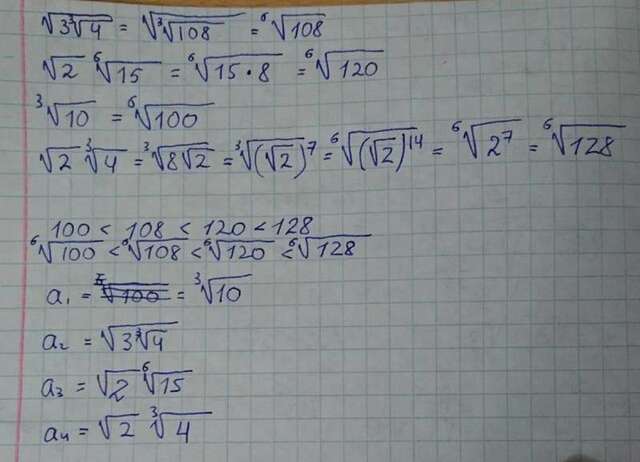 √(3∛4) = √(∛108) = ⁶√108
√2 ⁶√15 = ⁶√(15·8) = ⁶√120
³√10 = ⁶√100
√2 ³√4 = ³√(8√2) = ³√((√2)⁷) = ⁶√((√2)¹⁴) = ⁶√(2⁷) = ⁶√128
100 < 108 < 120 < 128
⁶√100 < ⁶√108 < ⁶√120 < ⁶√128
a₁ = = ³√10
a₂ = √(3∛4)
a₃ = √2 ⁶√15
a₄ = √2 ³√4